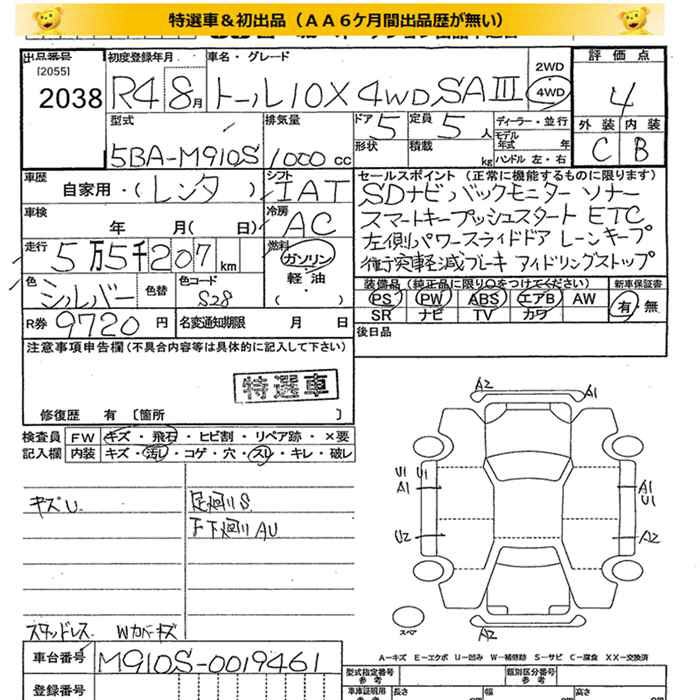 特選車＆初出品（ＡＡ６ケ月間出品歴が無い）
出品番号
[2055]
2038
初度登録年月
R4 8月
車名・グレード
トール10X 4WD SAIII
2WD
4WD
評価点
4
型式
5BA-M910S
排気量
1000 cc
ドア 5
定員 5人
形状
積載 kg
ディーラー・並行
モデル年式 年
ハンドル 左・右
外装 内装
C B
車歴
自家用・（レンタ）
シフト
IAT
車検
年 月（ 日）
冷房
AC
走行
5万5千207 km
燃料
ガソリン
軽・油
（・）
色
シルバー
色替
色コード
S28
R券 9720円
名変通知期限 月 日
セールスポイント（正常に機能するものに限ります）
SDナビ バックモニター ソナー
スマートキープッシュスタート ETC
左側パワースライドドア レーンキープ
衝突軽減ブレーキ アイドリングストップ
装備品（純正品に限り○をつけてください）
新車保証書
PS PW ABS エアB AW
有・無
SR ナビ TV カワ
後日品
注意事項申告欄（不具合内容等は具体的に記入して下さい）
特選車
修復歴 有 〔箇所 〕
検査員 FW キズ・飛石・ヒビ割・リペア跡・×要
記入欄 内装 キズ・汚レ・コゲ・穴・スレ・キレ・破レ
キズU
足廻リS
下廻リAU
スタッドレス Wカバーキズ
A2
A1
U1 U1
A1
A1
U1
U2
A2
A2
スペア
A－キズ E－エクボ U－凹み W－補修跡 S－サビ C－腐食 XX－交換済
車台番号
M910S-0019461
登録番号
型式指定番号 参考
類別区分番号 参考
車庫証明用 参考
長さ
幅
高さ